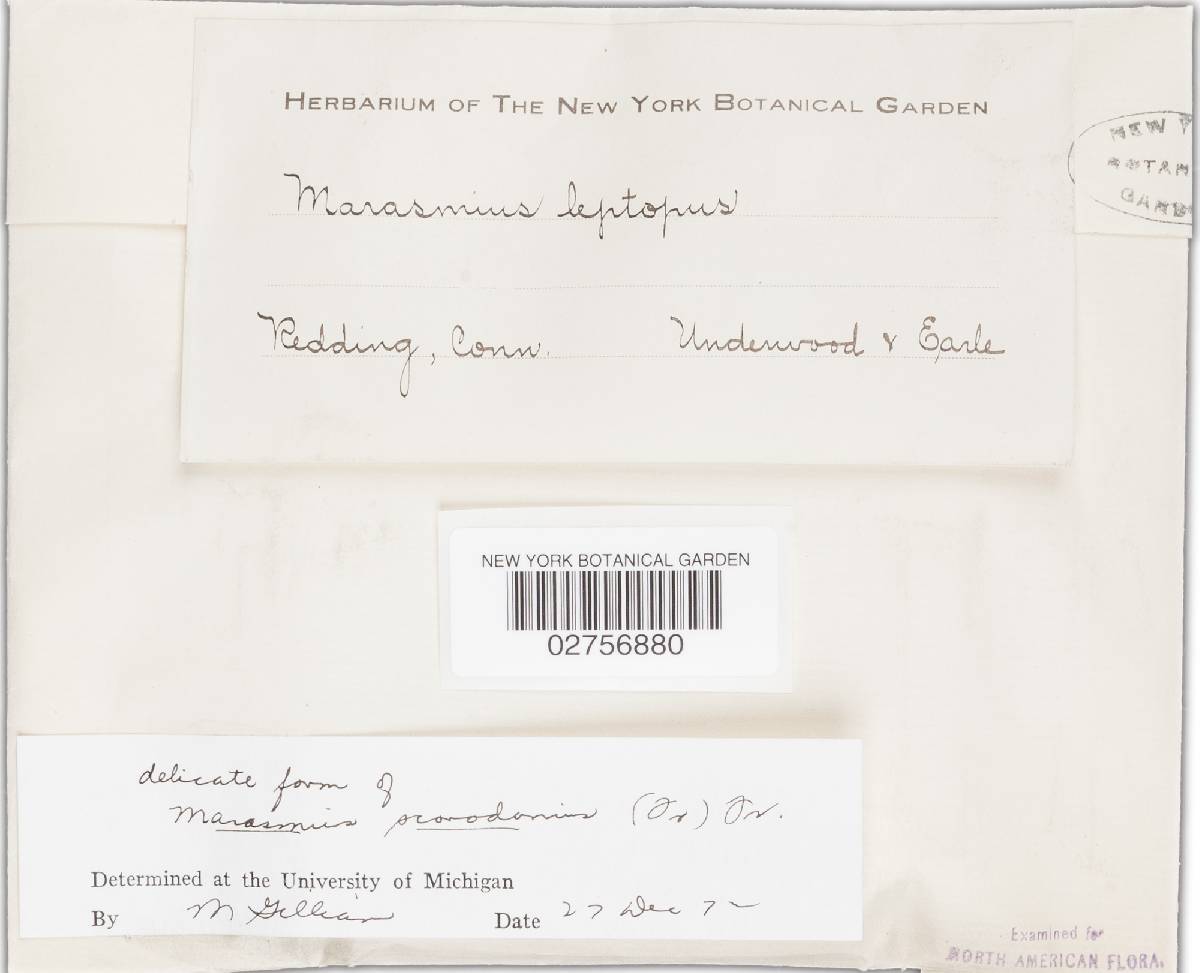 HERBARIUM OF THE NEW YORK BOTANICAL GARDEN
NEW Y
BOTAN
GARD
Marasmius leptopus
Redding, Conn. Underwood & Earle
NEW YORK BOTANICAL GARDEN
02756880
delicate form of
Marasmius scorodonius (Fr) Fr.
Determined at the University of Michigan
By M Gilliam Date 27 Dec 72
Examined for
NORTH AMERICAN FLORA.